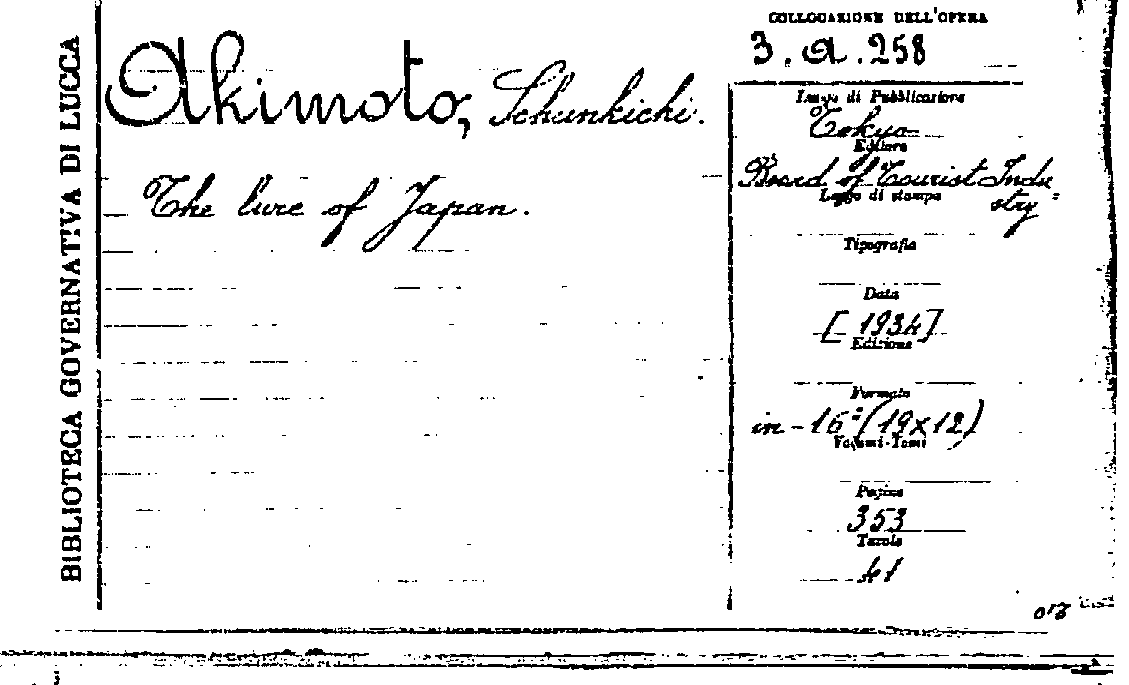 BIBLIOTECA GOVERNATIVA DI LUCCA
Akimoto, Schunkichi.
The lure of Japan.
COLLOCAZIONE DELL'OPERA
3. a. 258
Luogo di Pubblicazione
Tokyo
Editore
Board of Tourist Indu
stry
Luogo di stampa
Tipografia
Data
[1934]
Edizione
Formato
in-16º (19x12)
Volumi-Tomi
Pagine
353
Tavole
41